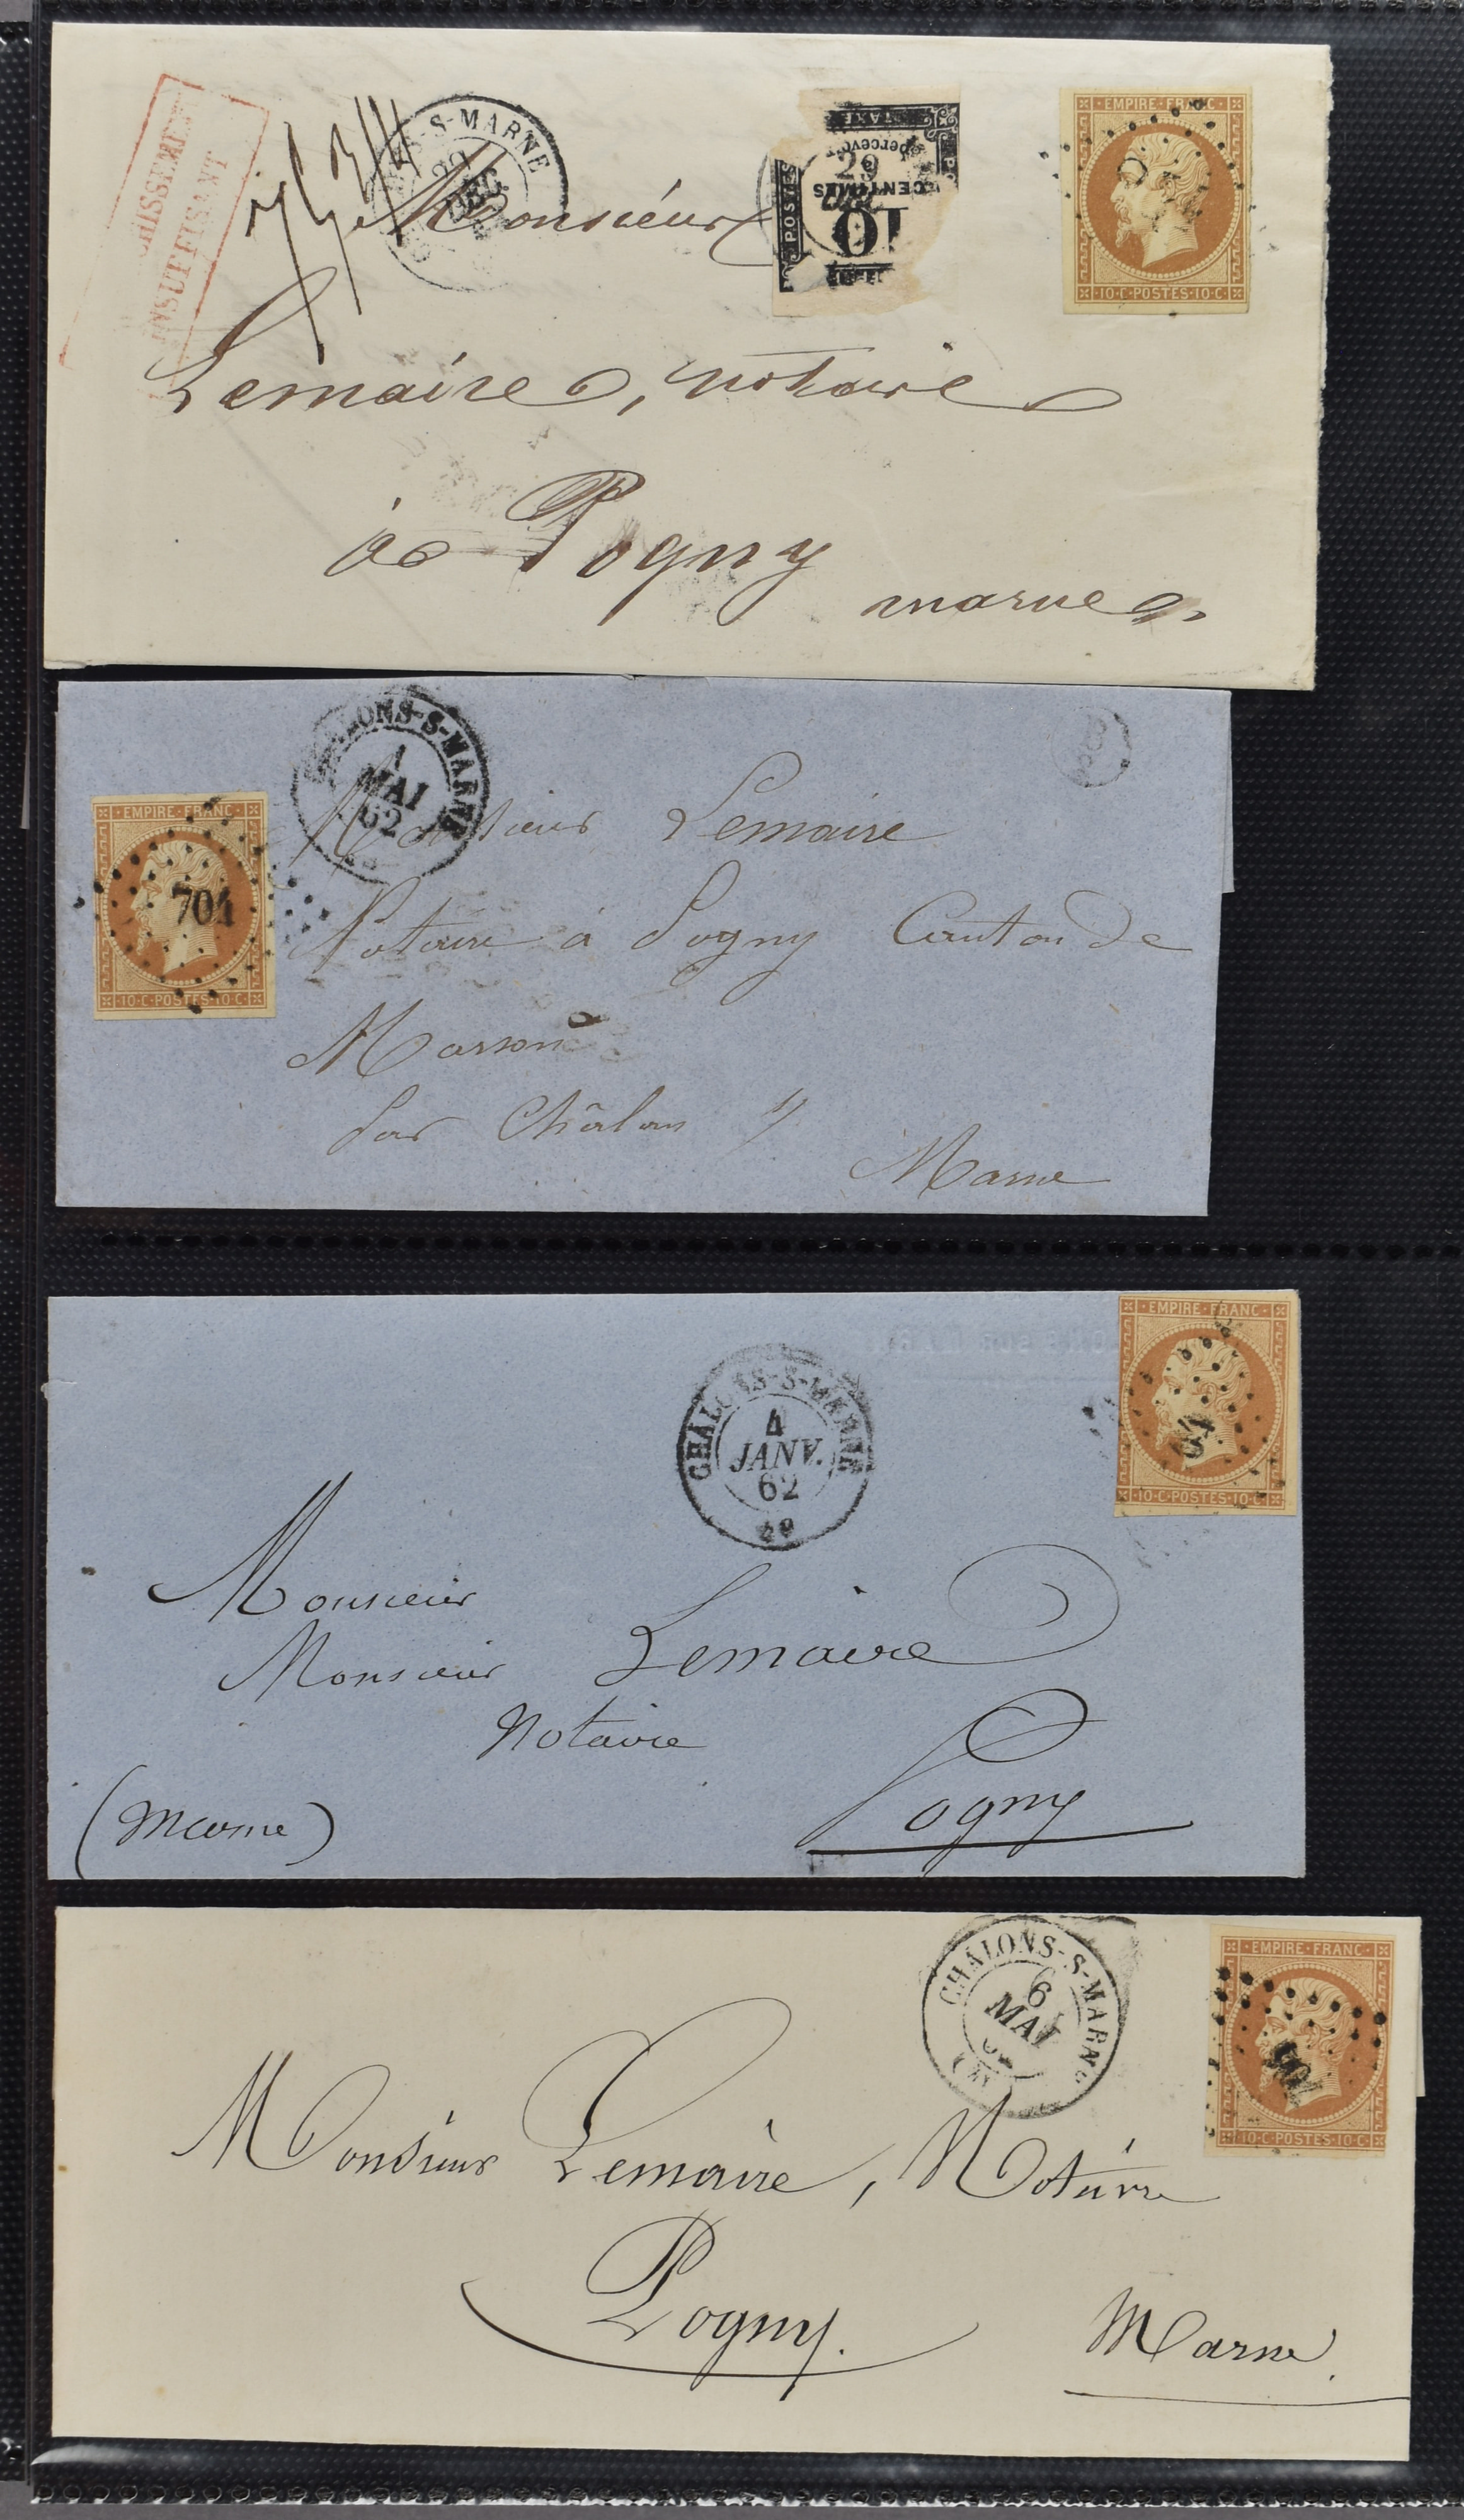 INSUFFISANT
S-MARNE
POSTES
TAXE
percevoir
29
CENTIMES
10
EMPIRE·FRANC·
·10·C·POSTES·10·C·
Monsieur
Lemaire, notaire
à Pogny
marne
CHALONS-S-MARNE
1
MAI
62
EMPIRE·FRANC·
704
·10·C·POSTES·10·C·
Monsieur Lemaire
Notaire à Pogny Canton de
Marson
par Châlons s/
Marne
CHALONS-S-MARNE
4
JANV.
62
EMPIRE·FRANC·
·10·C·POSTES·10·C·
Monsieur
Monsieur Lemaire
Notaire
Pogny
(Marne)
CHALONS-S-MARNE
6
MAI
EMPIRE·FRANC·
704
·10·C·POSTES·10·C·
Monsieur Lemaire, Notaire
Pogny.
Marne.